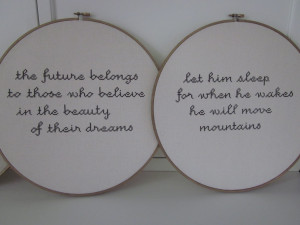 the future belongs
to those who believe
in the beauty
of their dreams
let him sleep
for when he wakes
he will move
mountains